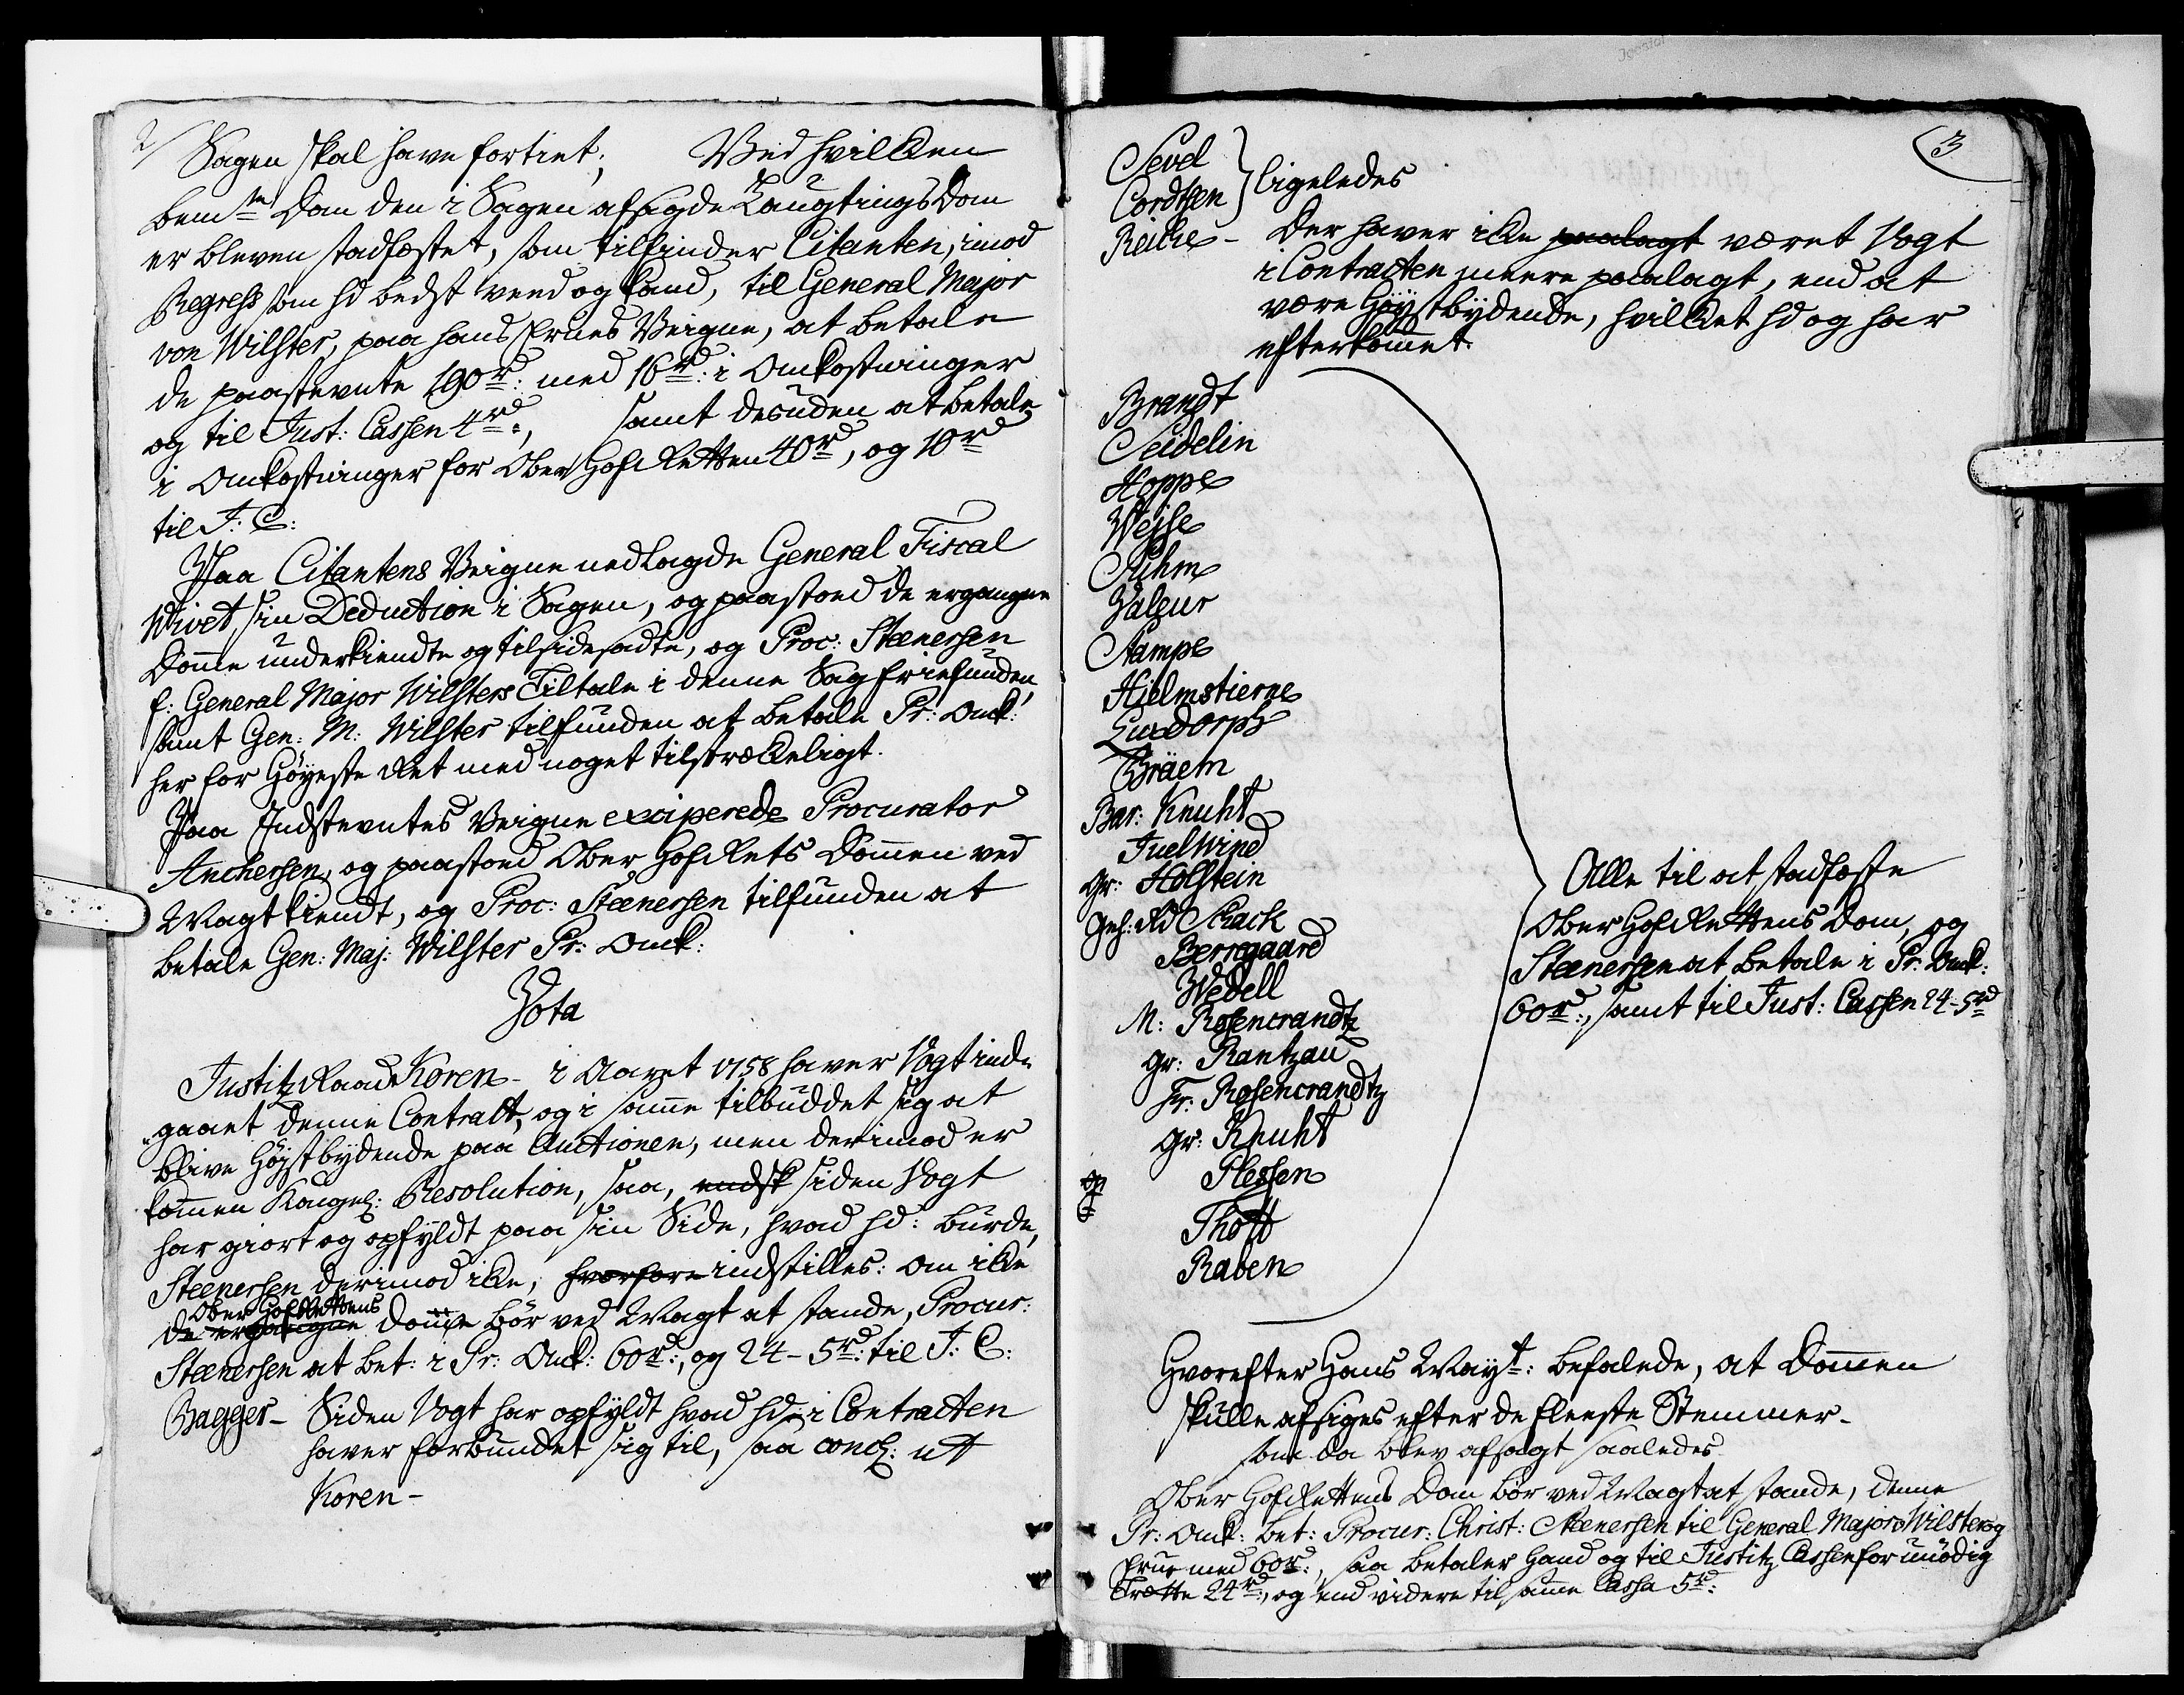 2/ Sagen skal have fortient; Ved hvilken
bem.te Dom den i Sagen afsagde Laugtings Dom
er bleven stadfæstet, som tilfinder Citanten, imod
Regress som hd bedst veed og kand, til General Major
von Wilster, paa hans Frues Veigne, at betale
de paastevnte 190 rd: med 16 rd: i Omkostninger
og til Just: Cassen 4 rd:, samt desuden at betale
i Omkostninger for Ober Hof Retten 40 rd, og 10 rd
til J: C:
Paa Citantens Veigne nedlagde General Fiscal
Wivet sin Deduction i Sagen, og paastoed de ergangne
Domme underkiendte og tilsidesadte, og Proc: Steenersen
f: General Major Wilsters Tiltale i denne Sag friefunden,
samt Gen: M: Wilster tilfunden at betale Pr: Omk:
her for Høyeste Ret med noget tilstrækkeligt.
Paa Indstevntes Veigne exciperede Procurator
Anchersen, og paastoed Ober Hof Rets Dommen ved
Magt kiendt, og Proc: Steenersen tilfunden at
betale Gen: Maj: Wilster Pr: Omk:
Vota
Justitz Raad Koren - i Aaret 1758 haver Vogt ind-
gaaet denne Contract, og i samme tilbuddet sig at
blive Høystbydende paa Auctionen, men derimod er
kommen Kongel: Resolution, saa, endsk siden Vogt
har giort og opfyldt paa sin Side, hvad hd: burde,
Steenersen derimod ikke, hvorfore indstilles: om ikke
Ober Hof Rettens
de ergangne Domme bør ved Magt at stande, Procur:
Steenersen at bet: i Pr: Omk: 60 rd:, og 24 - 5 rd: til J: C:
Bagger - Siden Vogt har opfyldt hvad hd: i Contracten
haver forbundet sig til, saa concl: ut
Koren -
3
Sevel
Cordtsen } ligeledes
Reiche - Der haver ikke paalagt været Vogt
i Contracten meere paalagt, end at
være Høystbydende, hvilket hd og har
efterkommet.
Brandt
Seidelin
Hoppe
Wejse
Suhm
Valeur
Stampe
Hielmstierne
Luxdorph
Bräem
Bar: Knuht
Juel Wind
Gr: Holstein
Geh: Rd Schack
Berregaard
Wedell
M: Rosencrandtz
Gr: Rantzau
Fr: Rosencrandtz
Gr: Knuht
Plessen
Thott
Raben
Alle til at stadfæste
Ober Hof Rettens Dom, og
Steenersen at betale i Pr: Omk:
60 rd:, samt til Just: Cassen 24 - 5 rd
Hvorefter Hans Mayt: befalede, at Dommen
skulle afsiges efter de fleeste Stemmer -
som da blev afsagt saaledes
Ober Hof Rettens Dom bør ved Magt at stande, denne
Pr: Omk: bet: Procur: Christ: Steenersen til General Major Wilster og
Frue med 60 rd:, saa betaler Hand og til Justitz Cassen for unødig
Trætte 24 rd:, og end videre til samme Cassa 5 rd: